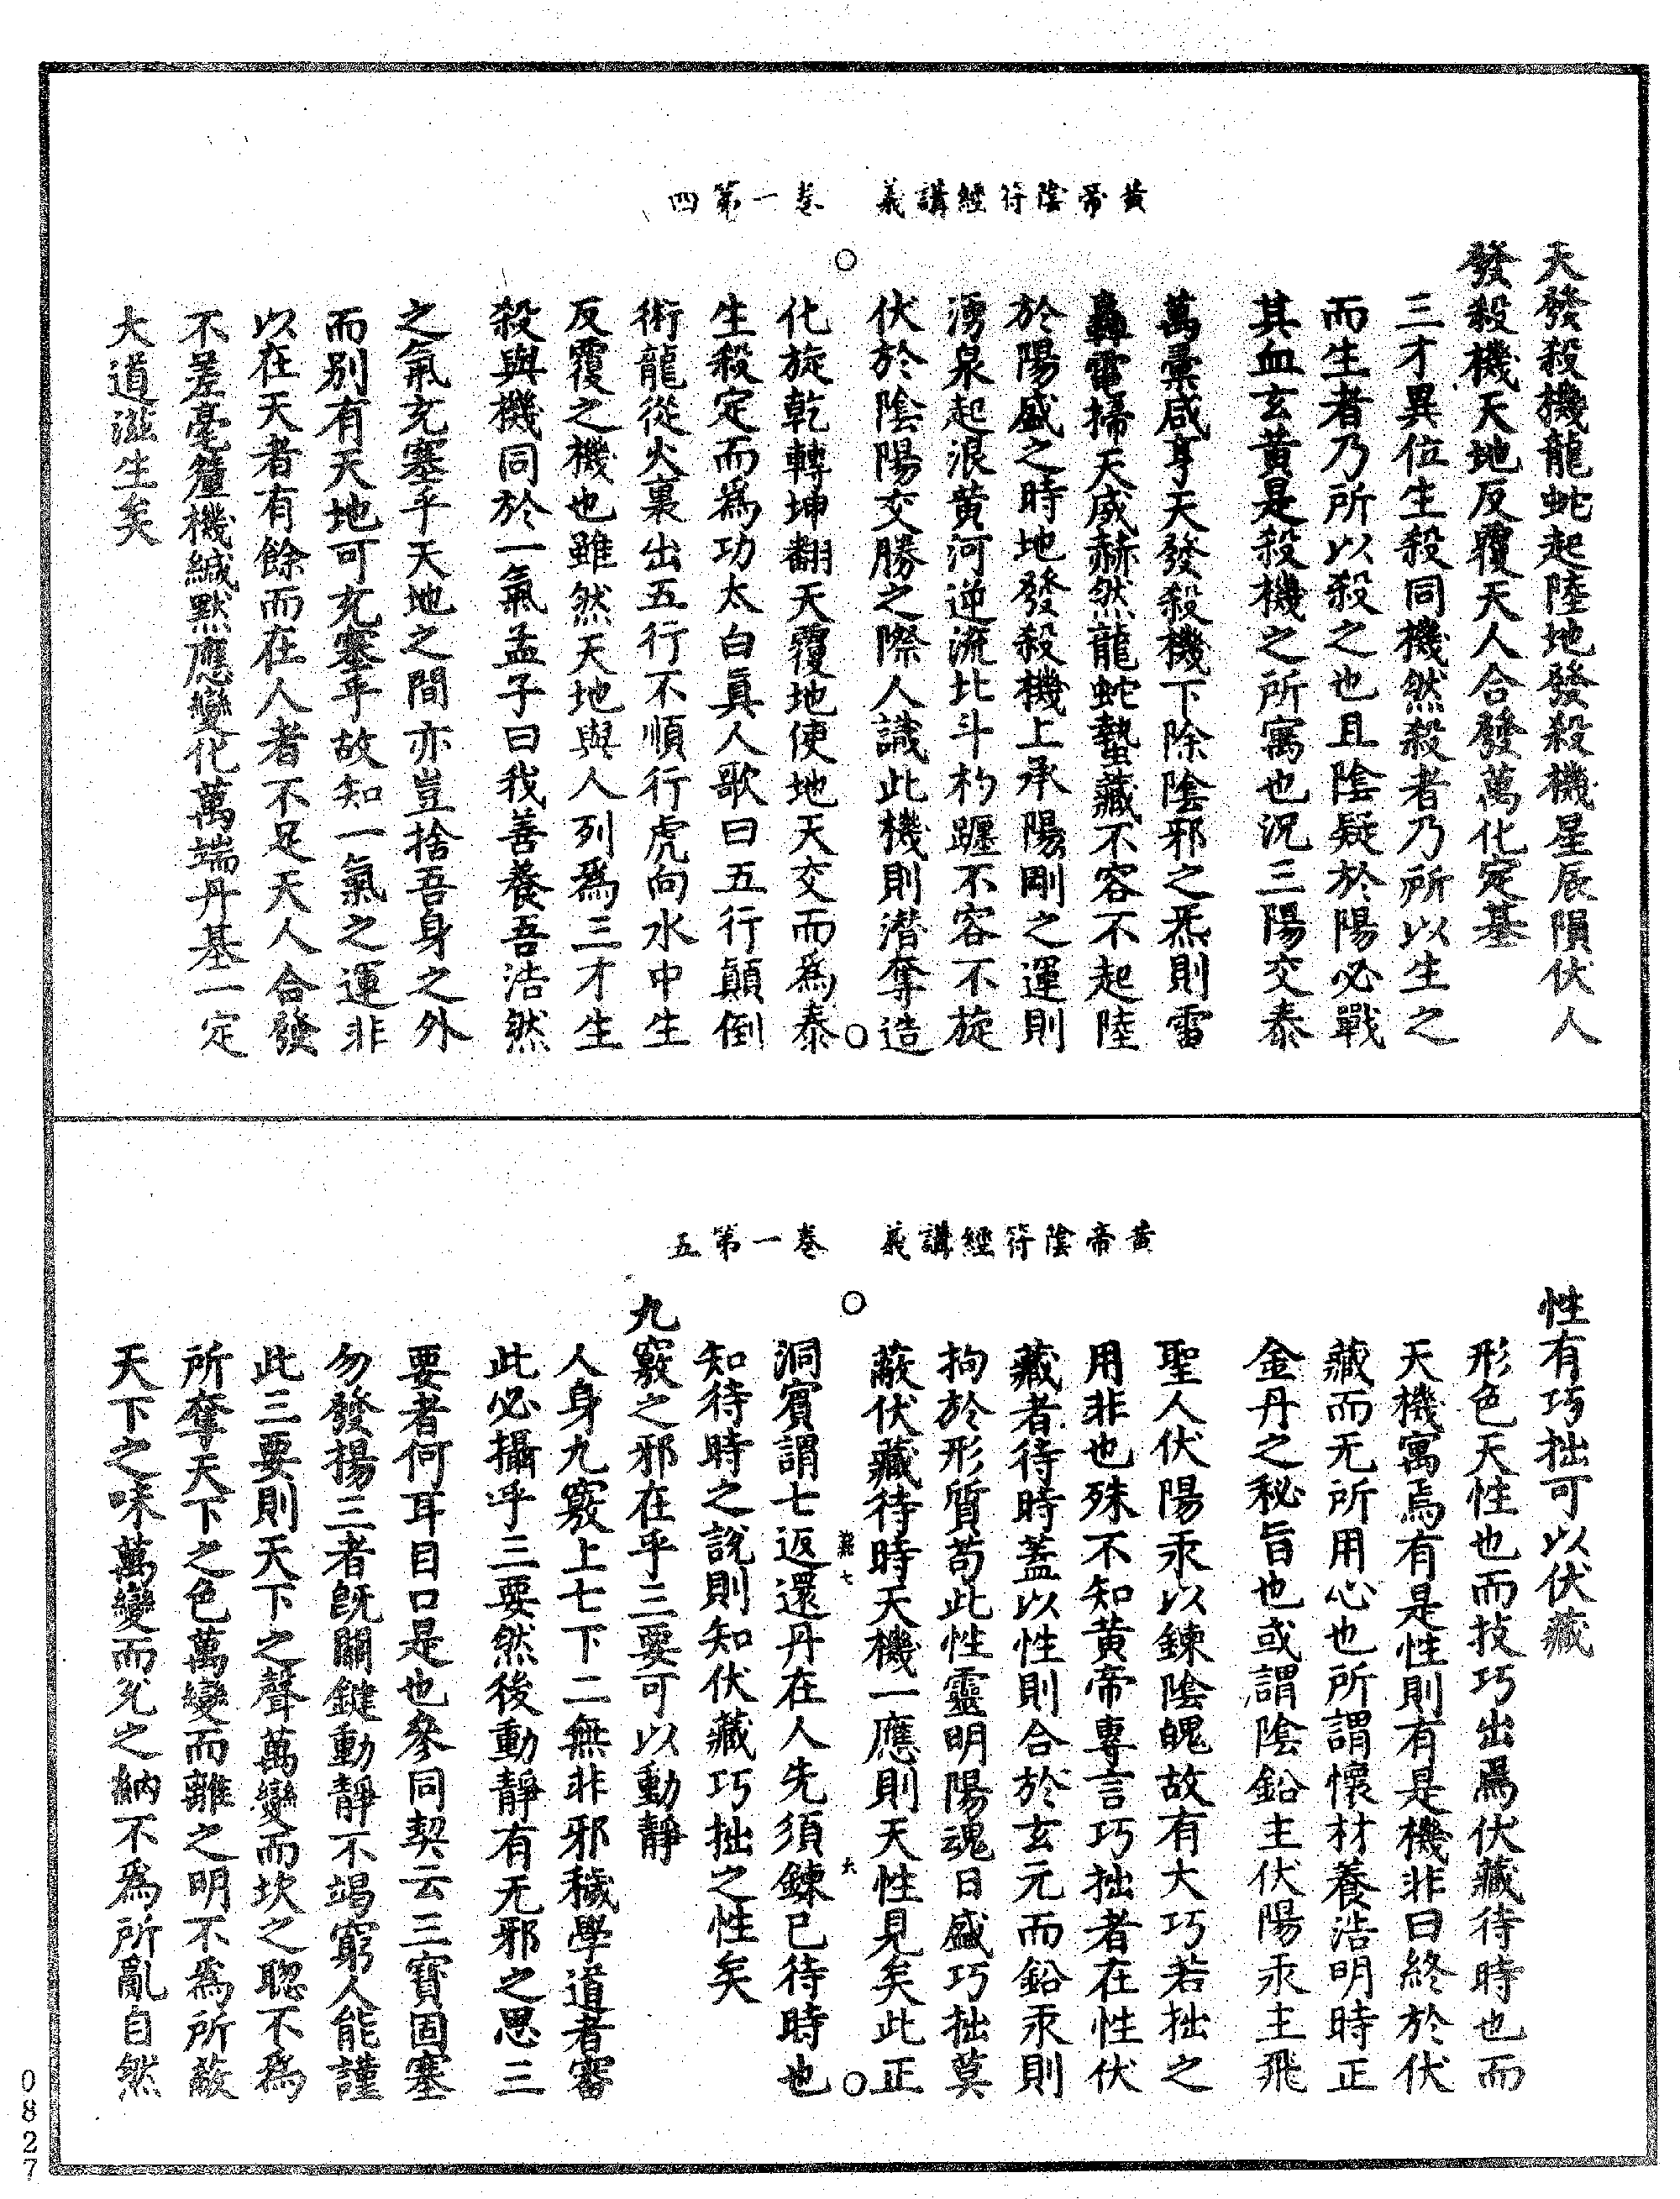 黃帝陰符經講義　卷一第四
天發殺機龍蛇起陸地發殺機星辰隕伏人
發殺機天地反覆天人合發萬化定基
三才異位生殺同機然殺者乃所以生之
而生者乃所以殺之也且陰疑於陽必戰
其血玄黃是殺機之所寓也況三陽交泰
萬彙咸亨天發殺機下除陰邪之炁則雷
轟電掃天威赫然龍蛇蟄藏不容不起陸
於陽盛之時地發殺機上承陽剛之運則
湧泉起浪黃河逆流北斗杓躔不容不旋
伏於陰陽交勝之際人識此機則潜奪造
化旋乾轉坤翻天覆地使地天交而爲泰
生殺定而爲功太白眞人歌曰五行顛倒
術龍從火裏出五行不順行虎向水中生
反覆之機也雖然天地與人列爲三才生
殺與機同於一氣孟子曰我善養吾浩然
之氣充塞乎天地之間亦豈捨吾身之外
而別有天地可充塞乎故知一氣之運非
以在天者有餘而在人者不足天人合發
不差毫釐機緘默應變化萬端丹基一定
大道滋生矣
黃帝陰符經講義　卷一第五
性有巧拙可以伏藏
形色天性也而技巧出焉伏藏待時也而
天機寓焉有是性則有是機非曰終於伏
藏而无所用心也所謂懷材養浩明時正
金丹之秘旨也或謂陰鉛主伏陽汞主飛
聖人伏陽汞以鍊陰魄故有大巧若拙之
用非也殊不知黃帝專言巧拙者在性伏
藏者待時蓋以性則合於玄元而鉛汞則
拘於形質苟此性靈明陽魂日盛巧拙莫
蔽伏藏待時天機一應則天性見矣此正
洞賓謂七返還丹在人先須鍊己待時也
知待時之說則知伏藏巧拙之性矣
九竅之邪在乎三要可以動靜
人身九竅上七下二無非邪穢學道者審
此必攝乎三要然後動靜有无邪之思三
要者何耳目口是也參同契云三寶固塞
勿發揚三者旣關鍵動靜不竭窮人能謹
此三要則天下之聲萬變而坎之聰不爲
所奪天下之色萬變而離之明不爲所蔽
天下之味萬變而兌之納不爲所亂自然
0827